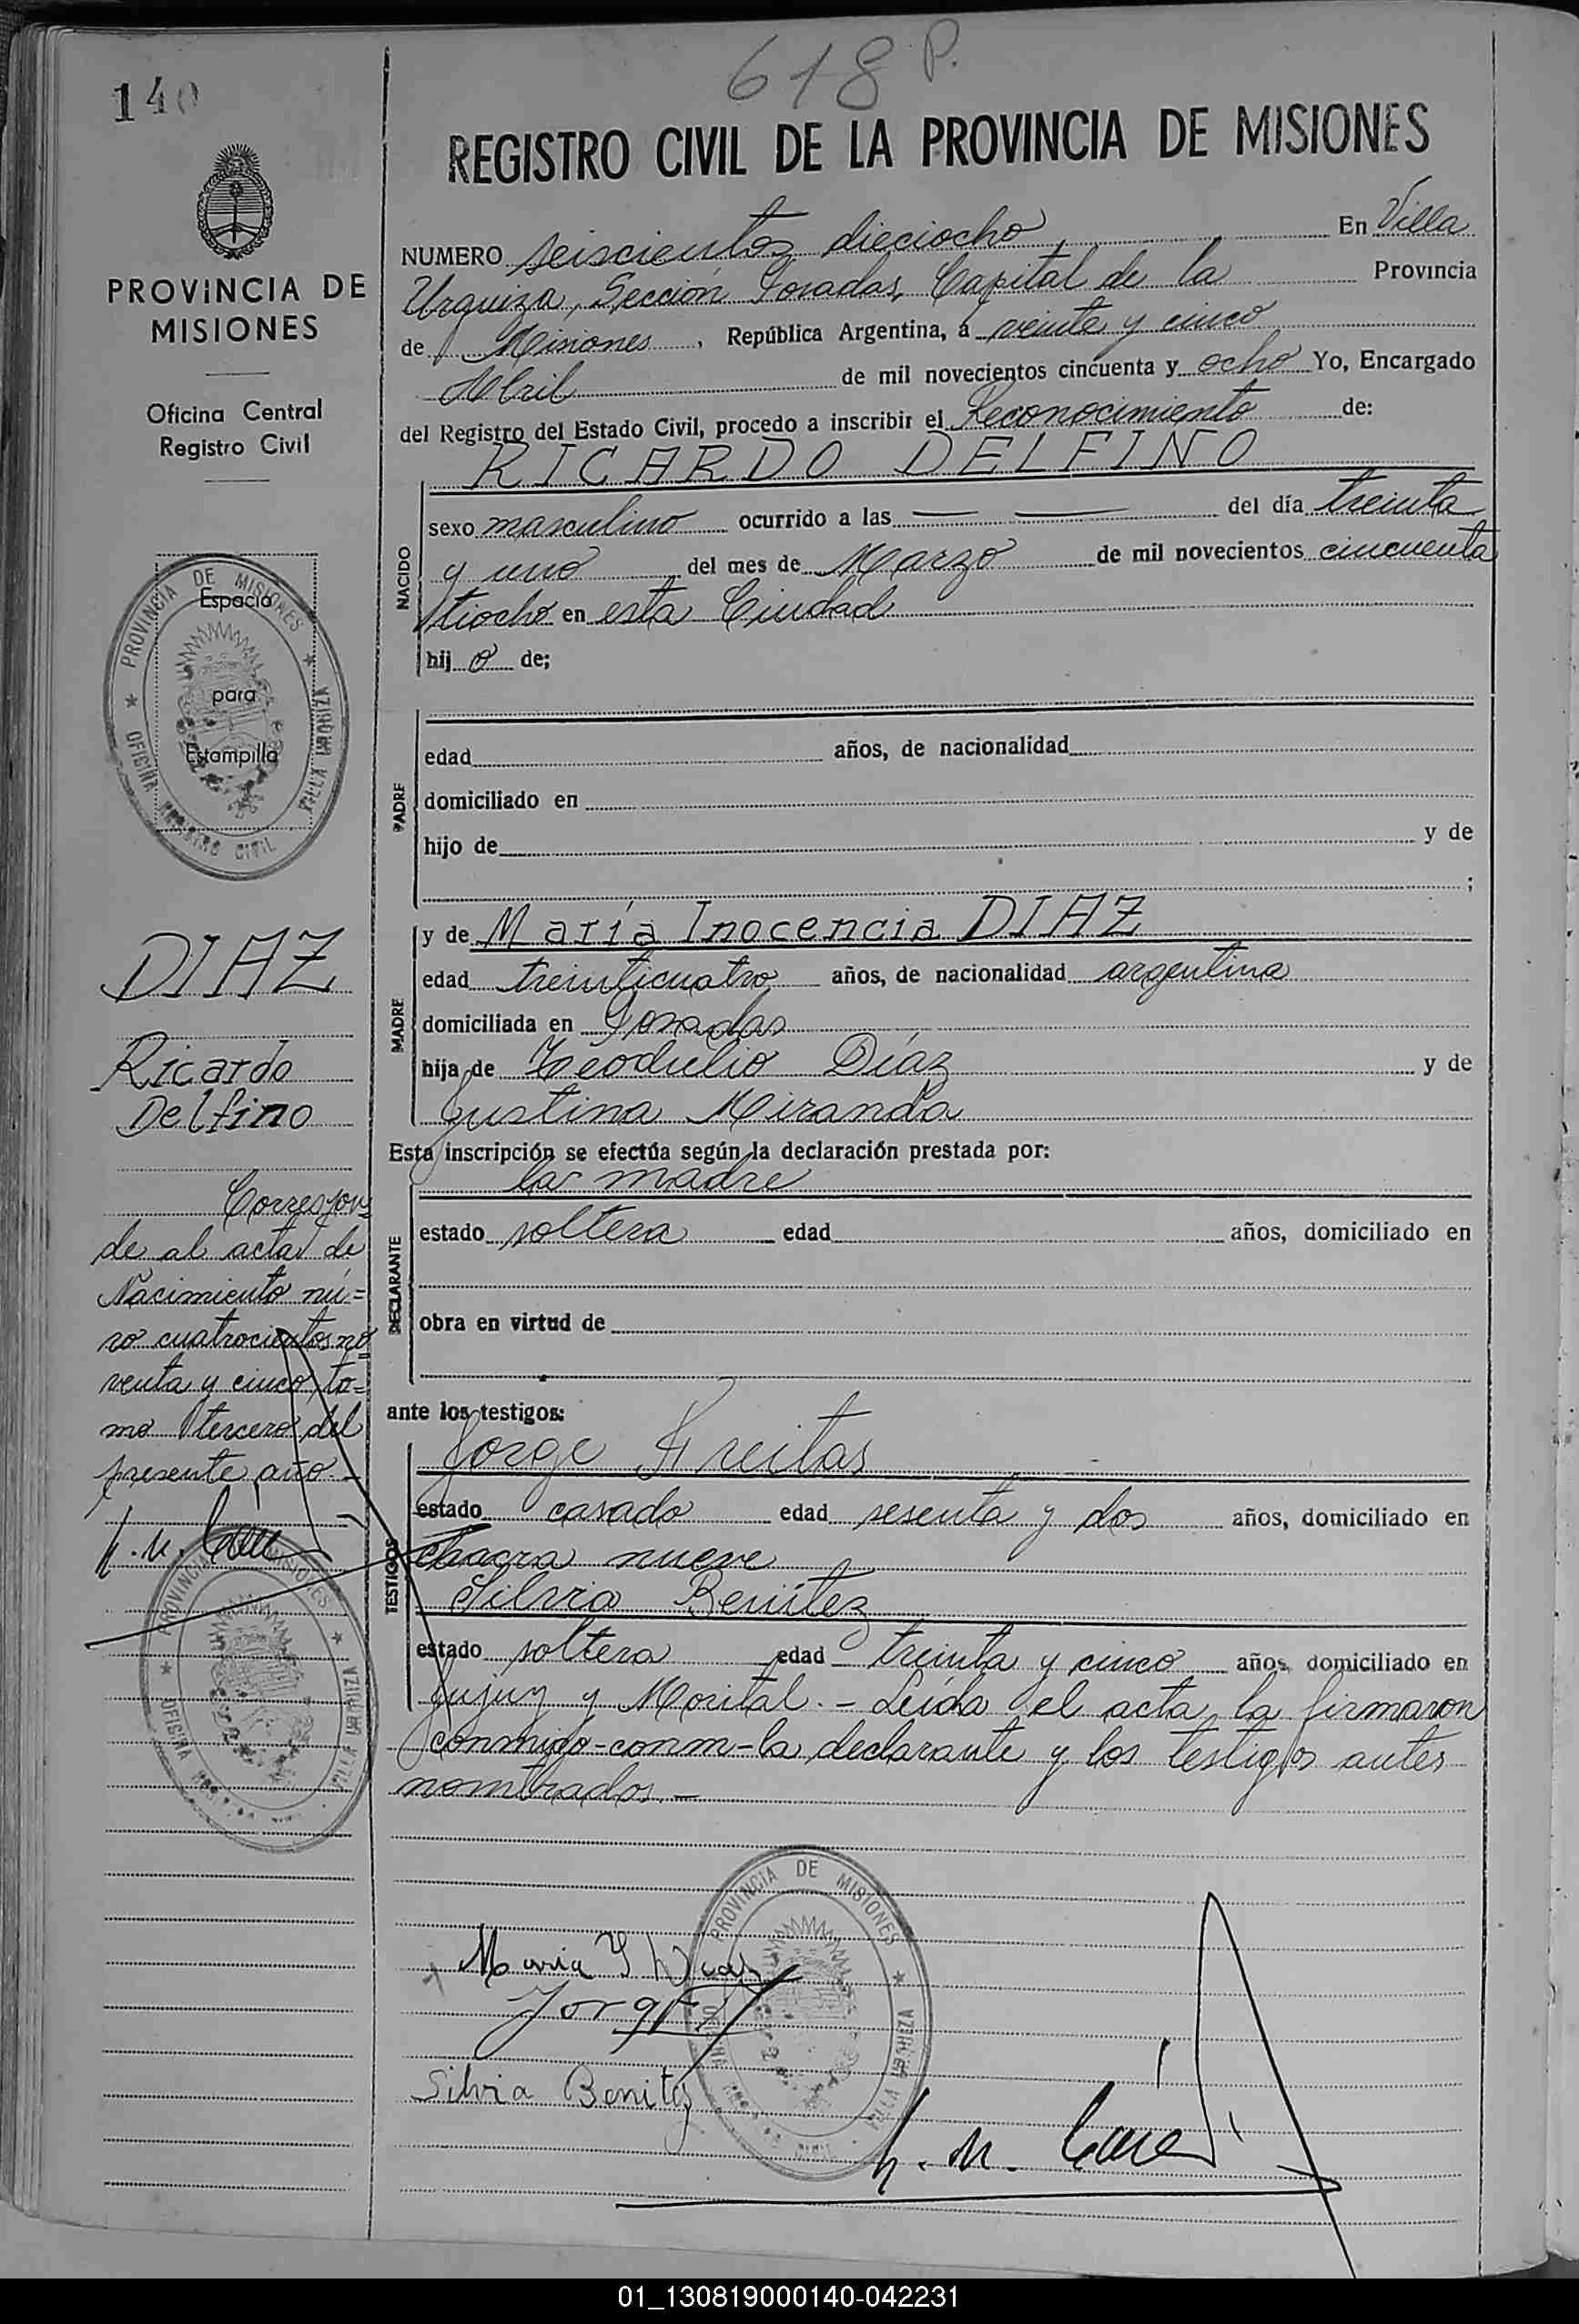 618 P.
140
REGISTRO CIVIL DE LA PROVINCIA DE MISIONES
PROVINCIA DE
MISIONES
Oficina Central
Registro Civil
NUMERO seiscientos dieciocho, En Villa
Urquiza, Sección Posadas, Capital de la Provincia
de Misiones, República Argentina, a veinte y cinco
Abril de mil novecientos cincuenta y ocho Yo, Encargado
del Registro del Estado Civil, procedo a inscribir el Reconocimiento de:
RICARDO DELFINO
NACIDO
sexo masculino ocurrido a las — — del día treinta
y uno del mes de Marzo de mil novecientos cincuenta
tiocho en esta Ciudad
hijo de;
PADRE
edad años, de nacionalidad
domiciliado en
hijo de y de
;
MADRE
y de María Inocencia DIAZ
edad treinticuatro años, de nacionalidad argentina
domiciliada en Posadas
hija de Teodulio Díaz y de
Justina Miranda
Esta inscripción se efectúa según la declaración prestada por:
DECLARANTE
la madre
estado soltera edad años, domiciliado en
obra en virtud de
ante los testigos:
TESTIGOS
Jorge Freitas
estado casado edad sesenta y dos años, domiciliado en
chacra nueve
Silvia Benítez
estado soltera edad treinta y cinco años, domiciliado en
Jujuy y . - Leída el acta, la firmaron
conmigo-conm-la declarante y los testigos antes
nombrados. -
Espacio
para
Estampilla
PROVINCIA DE MISIONES
OFICINA REGISTRO CIVIL
VILLA URQUIZA
DIAZ
Ricardo
Delfino
Correspon=
de al acta de
Nacimiento nú=
ro cuatrocientos no
venta y cinco, to=
mo tercero del
presente año. -
PROVINCIA DE MISIONES
OFICINA
VILLA URQUIZA
Maria Y Diaz
Jorge
Silvia Benitez
PROVINCIA DE MISIONES
VILLA URQUIZA
01_130819000140-042231